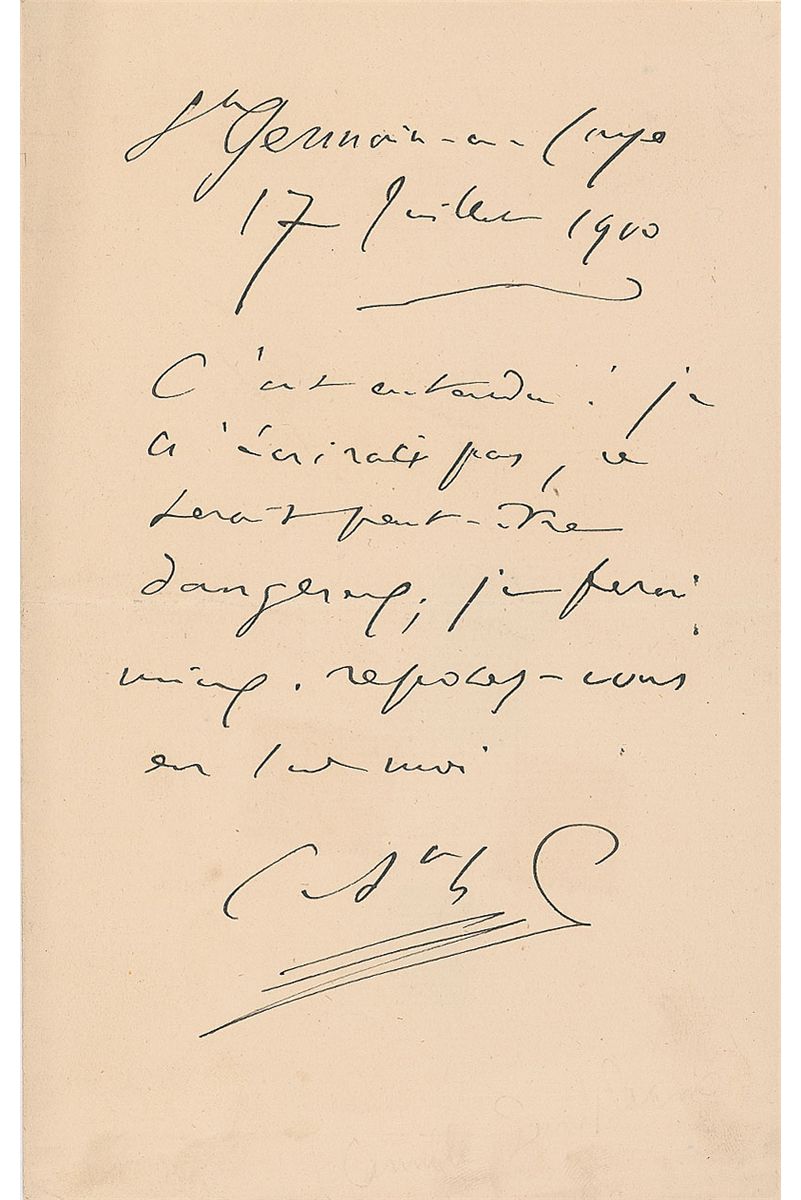 St Germain-en-Laye
17 Juillet 1900
C'est entendu ! je
n'écrirais pas, ce
serait peut-être
dangereux ; je ferai
mieux. reposez-vous
en sur moi
C. St S